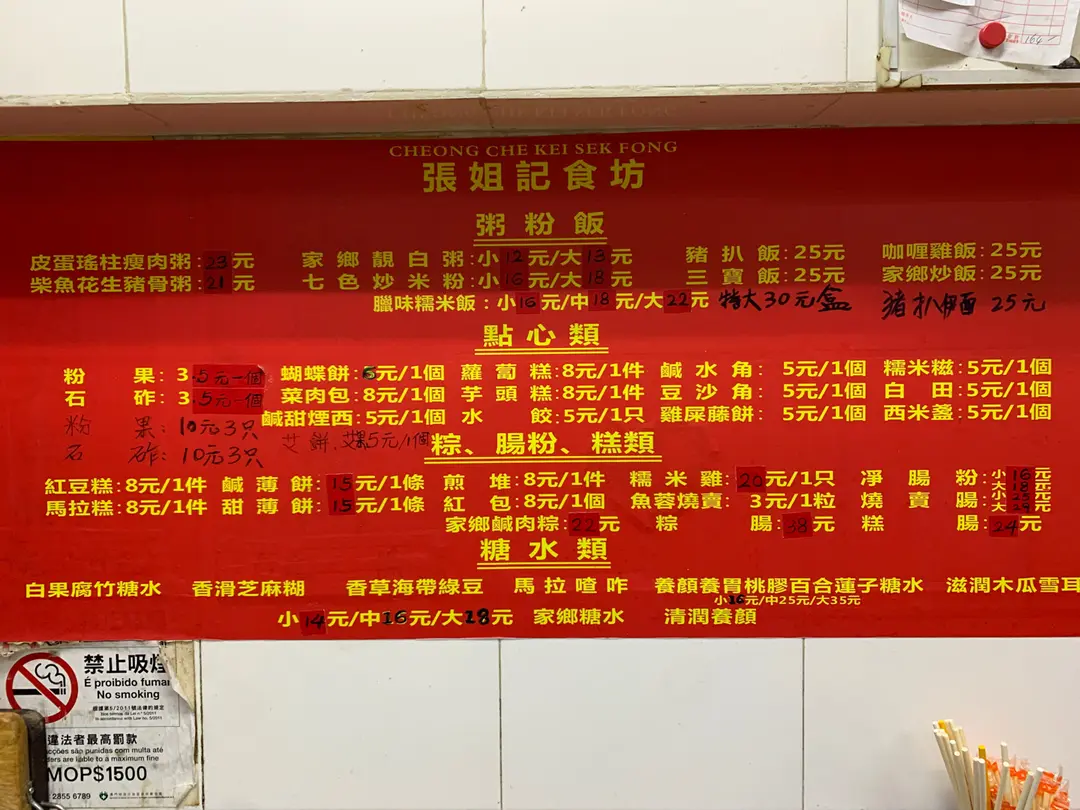 CHEONG CHE KEI SEK FONG
張姐記食坊
粥粉飯
皮蛋瑤柱瘦肉粥:23元 家鄉靚白粥:小12元/大13元 豬扒飯:25元 咖喱雞飯:25元
柴魚花生豬骨粥:21元 七色炒米粉:小16元/大18元 三寶飯:25元 家鄉炒飯:25元
臘味糯米飯:小16元/中18元/大22元 特大30元盒 豬扒 25元
點心類
粉果:3.5元一個 蝴蝶餅:6元/1個 蘿蔔糕:8元/1件 鹹水角:5元/1個 糯米糍:5元/1個
石砟:3.5元一個 菜肉包:8元/1個 芋頭糕:8元/1件 豆沙角:5元/1個 白田:5元/1個
鹹甜煙西:5元/1個 水餃:5元/1只 雞屎藤餅:5元/1個 西米盞:5元/1個
粉果:10元3只
石砟:10元3只 艾餅. 5元/1個
粽、腸粉、糕類
紅豆糕:8元/1件 鹹薄餅:15元/1條 煎堆:8元/1件 糯米雞:20元/1只 淨腸粉:小16元大18元
馬拉糕:8元/1件 甜薄餅:15元/1條 紅包:8元/1個 魚蓉燒賣:3元/1粒 燒賣腸:小23元大29元
家鄉鹹肉粽:22元 粽腸:38元 糕腸:24元
糖水類
白果腐竹糖水 香滑芝麻糊 香草海帶綠豆 馬拉喳咋 養顏養胃桃膠百合蓮子糖水 滋潤木瓜雪耳
小16元/中25元/大35元
小14元/中16元/大28元 家鄉糖水 清潤養顏
禁止吸煙
É proibido fumar
No smoking
違法者最高罰款
acções são punidas com multa até
ders are liable to a maximum fine
MOP$1500
2855 6789
164